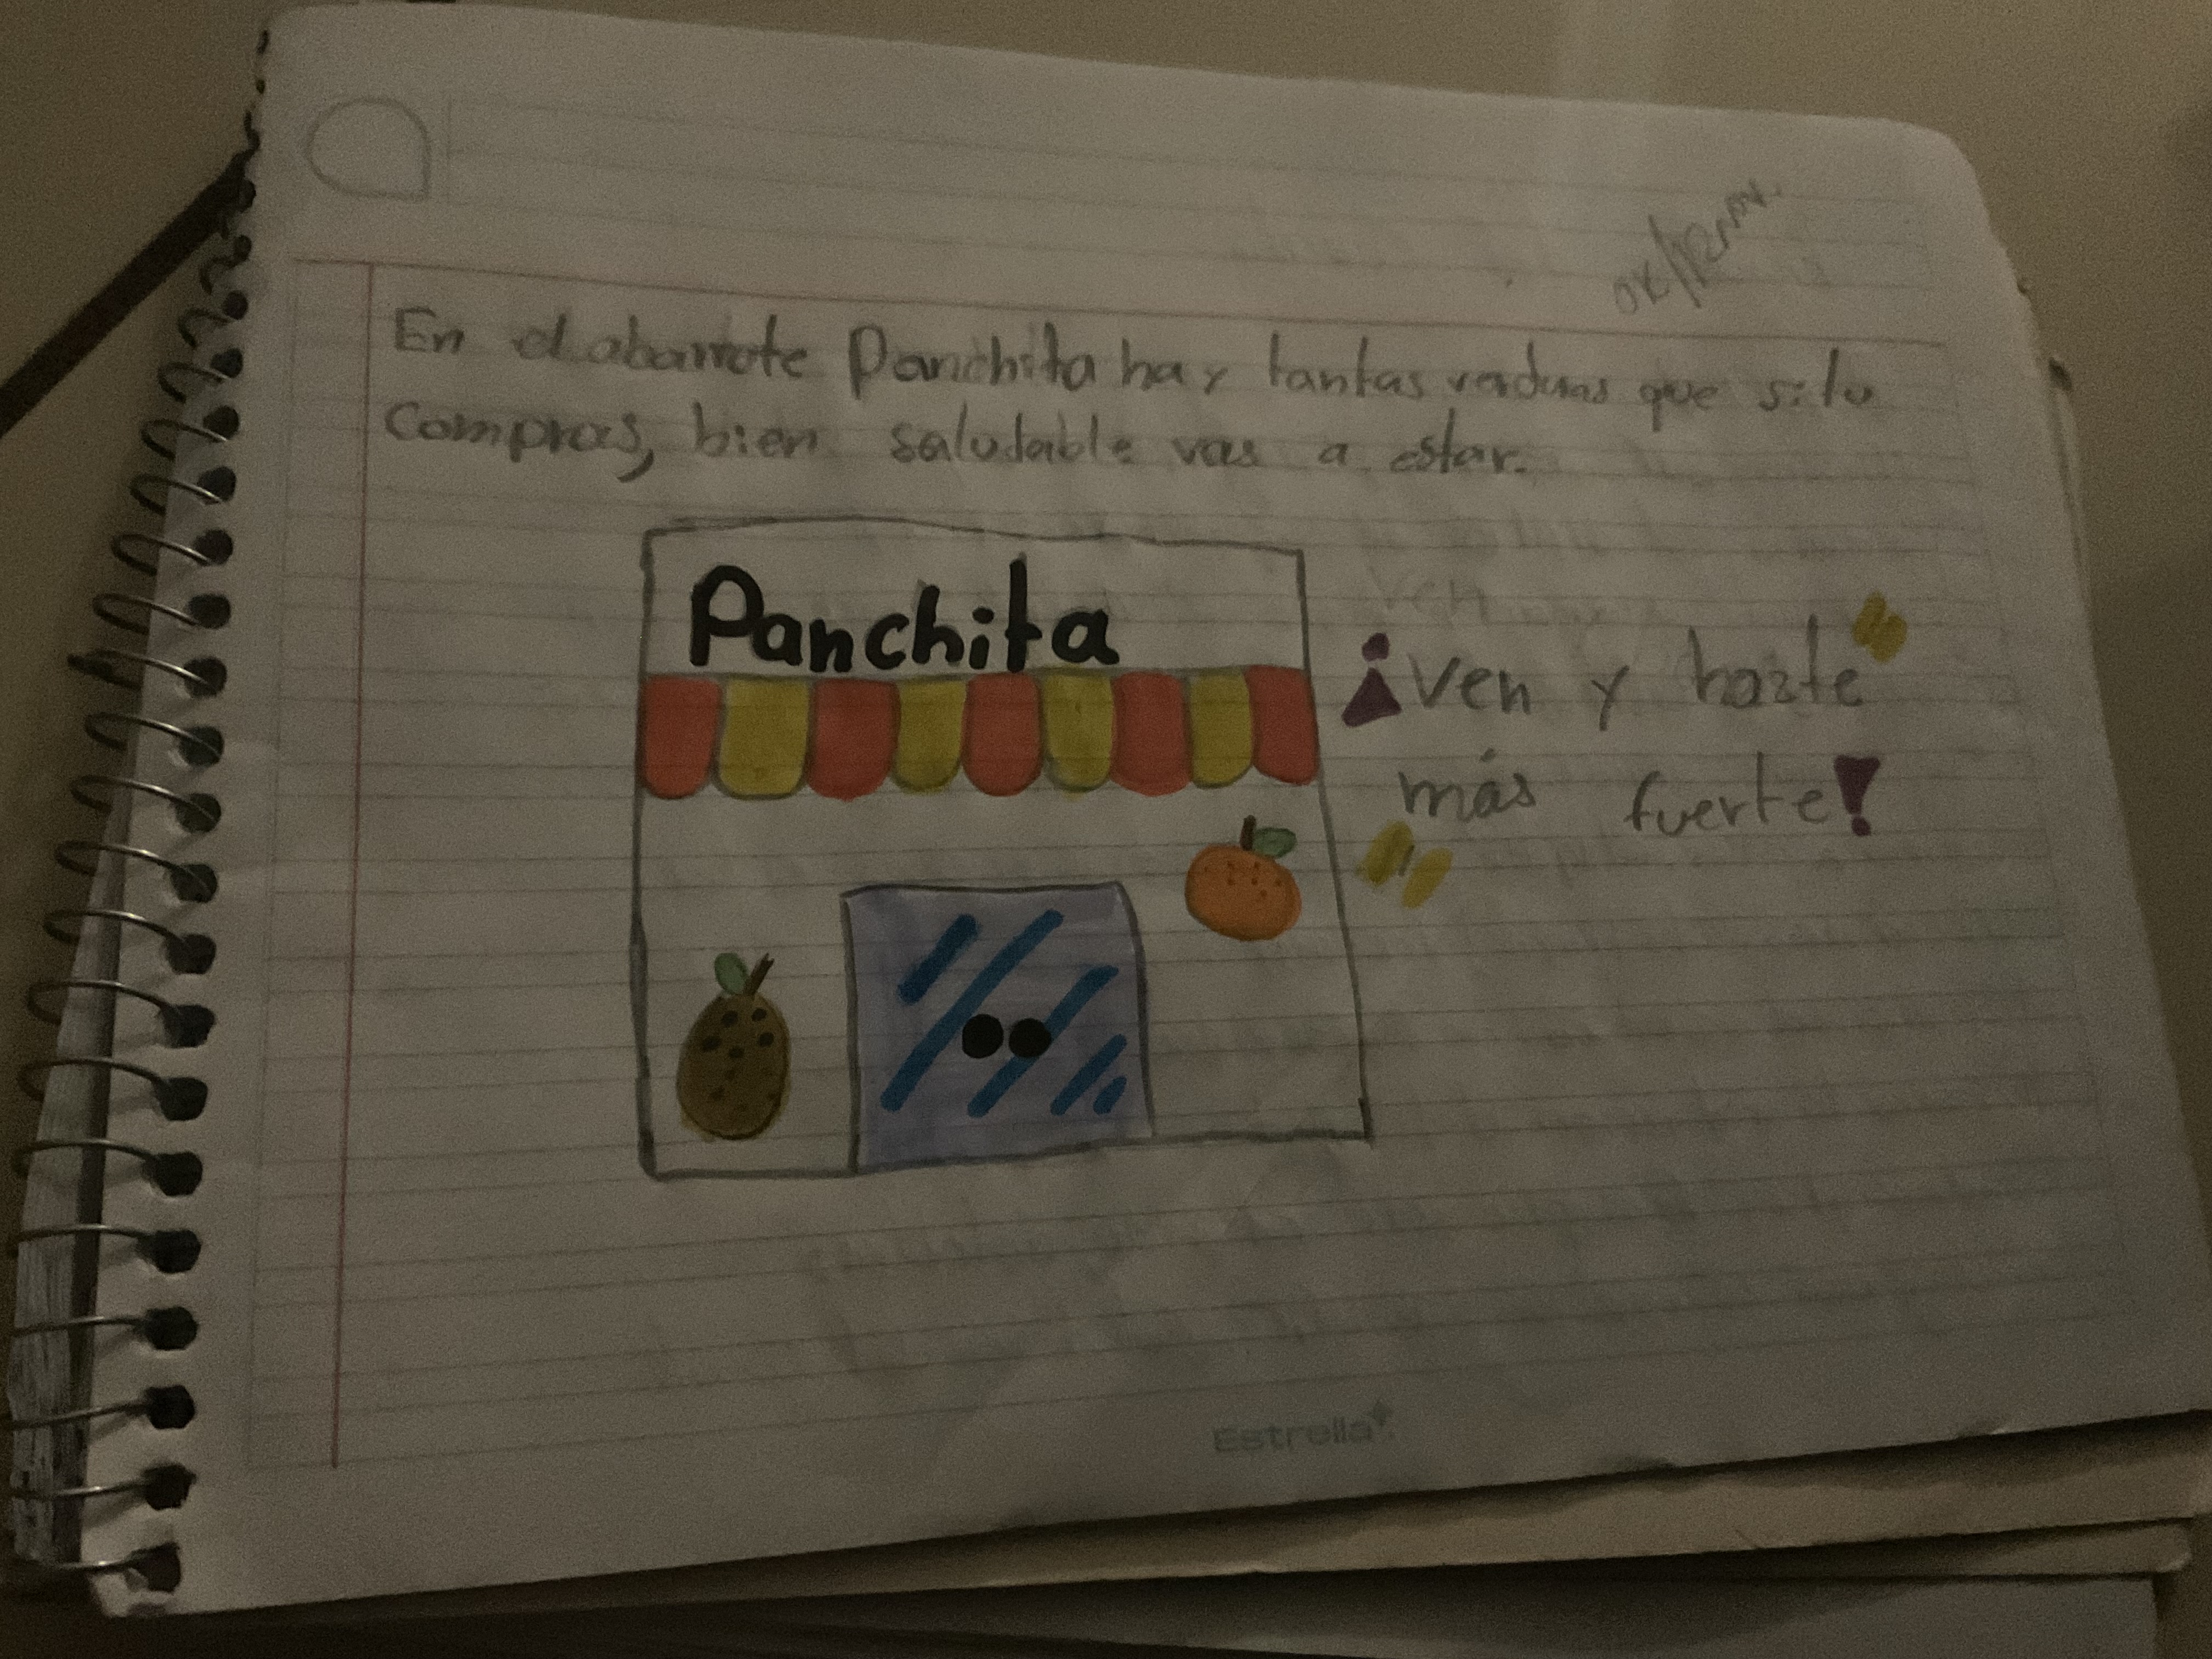 OK/
En el abarrote Panchita hay tantas verduras que si tu
Compras, bien saludable vas a estar.
Panchita
¡Ven y hazte
más fuerte!
Estrella